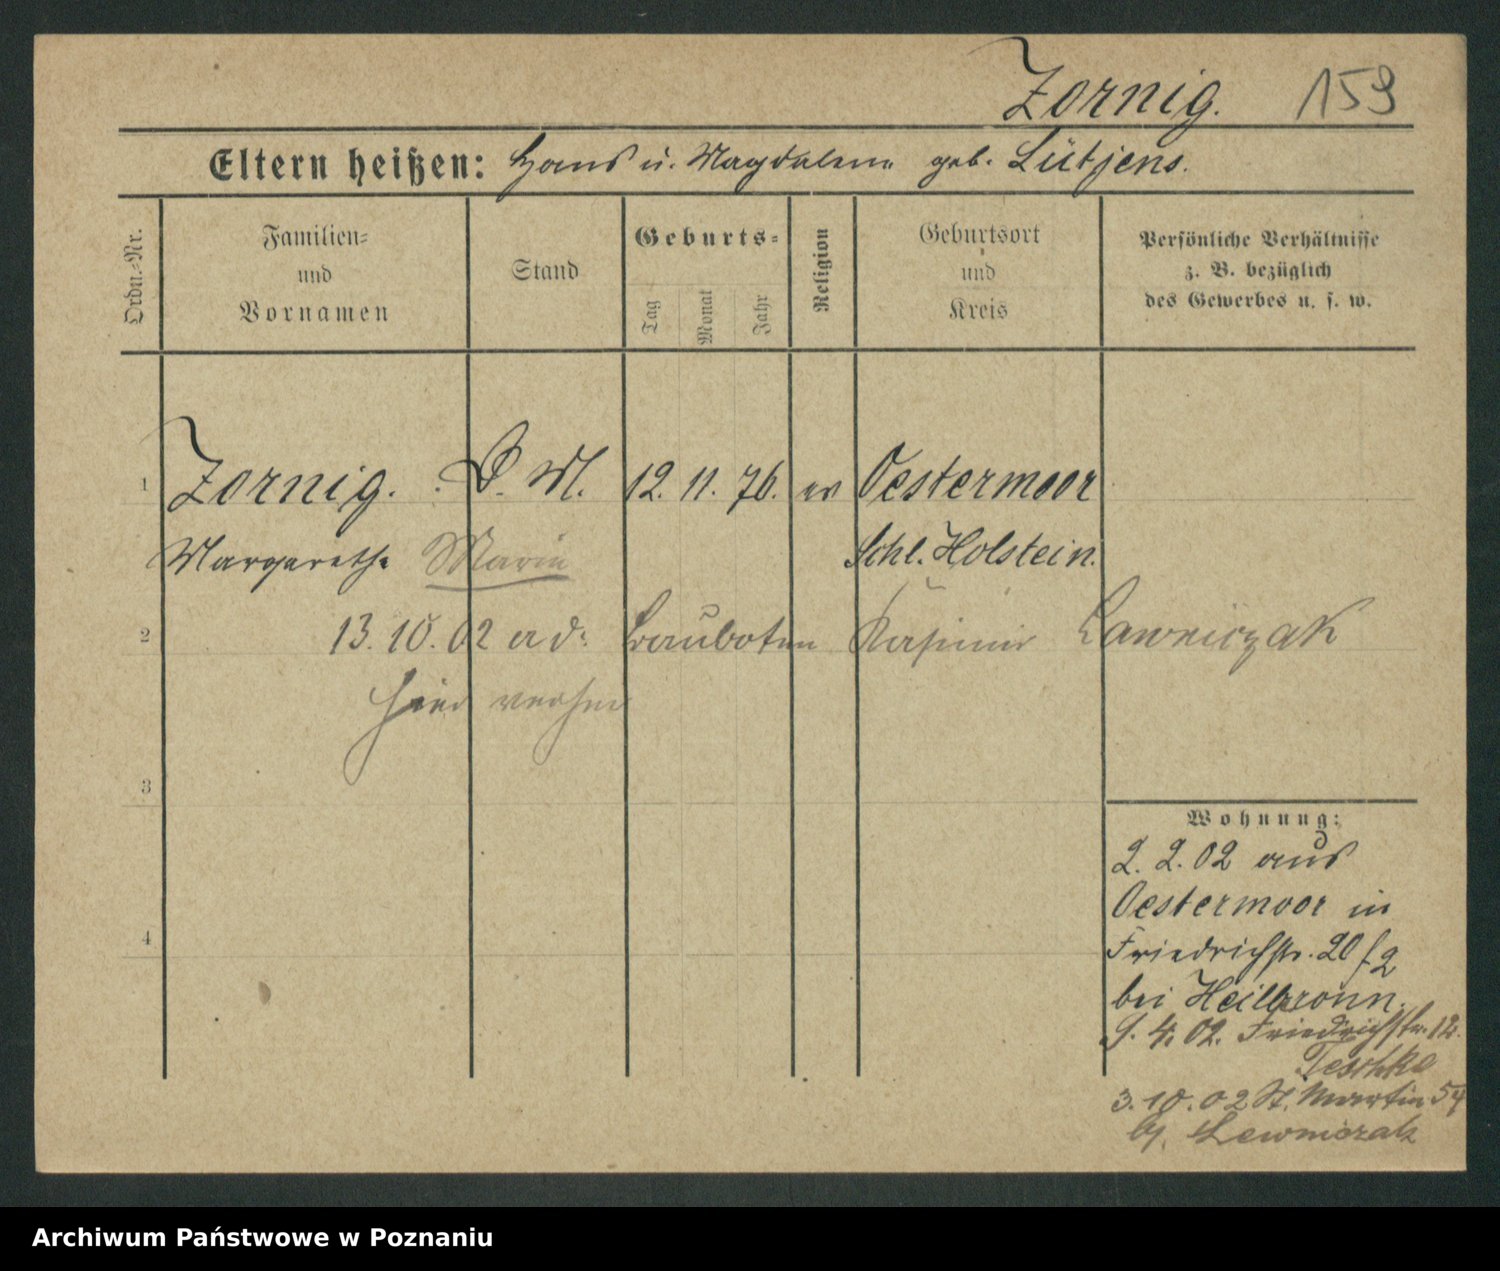 Zornig. 159
Eltern heißen: Hans u. Magdalena geb. Lütjens.
Ordn.-Nr.
Familien-
und
Vornamen
Stand
Geburts-
Tag
Monat
Jahr
Religion
Geburtsort
und
Kreis
Persönliche Verhältnisse
z. B. bezüglich
des Gewerbes u. s. w.
1 Zornig. D. M. 12. 11. 76. ev Oestermoor
Margarethe Marie Schl. Holstein.
2 13. 10. 02 a d. Kasimir Lawniczak
hier
3
4
Wohnung:
2. 2. 02 aus
Oestermoor in
Friedrichstr. 20
bei Heilbronn.
4. 02. Friedrichstr. 12.
Teschke
3. 10. 02 St. Martin 54
b/. Lewniczak
Archiwum Państwowe w Poznaniu